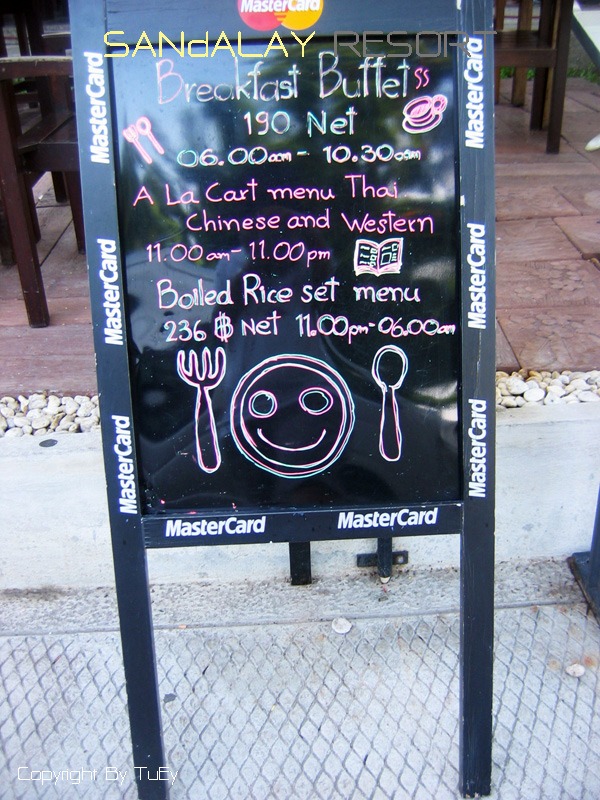 MasterCard
SANdALAY RESORT
Breakfast Buffet
190 Net
06.00am - 10.30am
A La Cart menu Thai
Chinese and Western
11.00am - 11.00pm
Boiled Rice set menu
236 ฿ Net 11.00pm-06.00am
MasterCard
MasterCard
MasterCard
MasterCard
MasterCard
MasterCard
MasterCard MasterCard
Copyright By TuEy